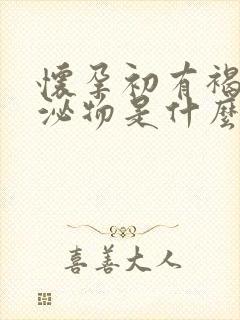 懷孕初有褐
泌物是什麼
喜善大人